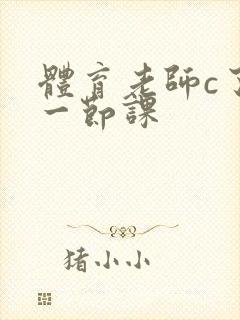 體育老師c了
一節課
猪小小